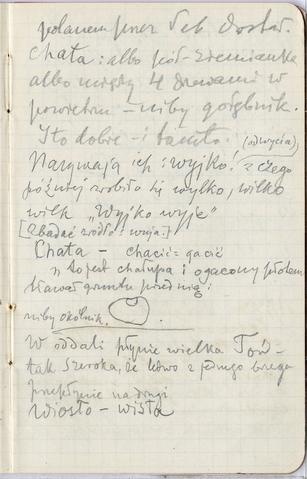 polanem przez Seb. dostał.
Chata: albo pół-ziemianka
albo między 4 drzewami w
powietrzu – niby gołębnik.
I to dobre – i tamto.
(od wycia)
Nazywają ich: wyjko! z czego
później zrobiło się wylko, wilko
wilk "Wyjko wyje"
[Zbadać źródło: wyja.]
Chata – chacić = gacić
to jest chałupa i ogacony płotem
kawał gruntu przed nią:
niby okólnik.
W oddali płynie wielka
tak szeroka, że ledwo z jednego brzegu
przepłynie na drugi
Wiosło – Wisła